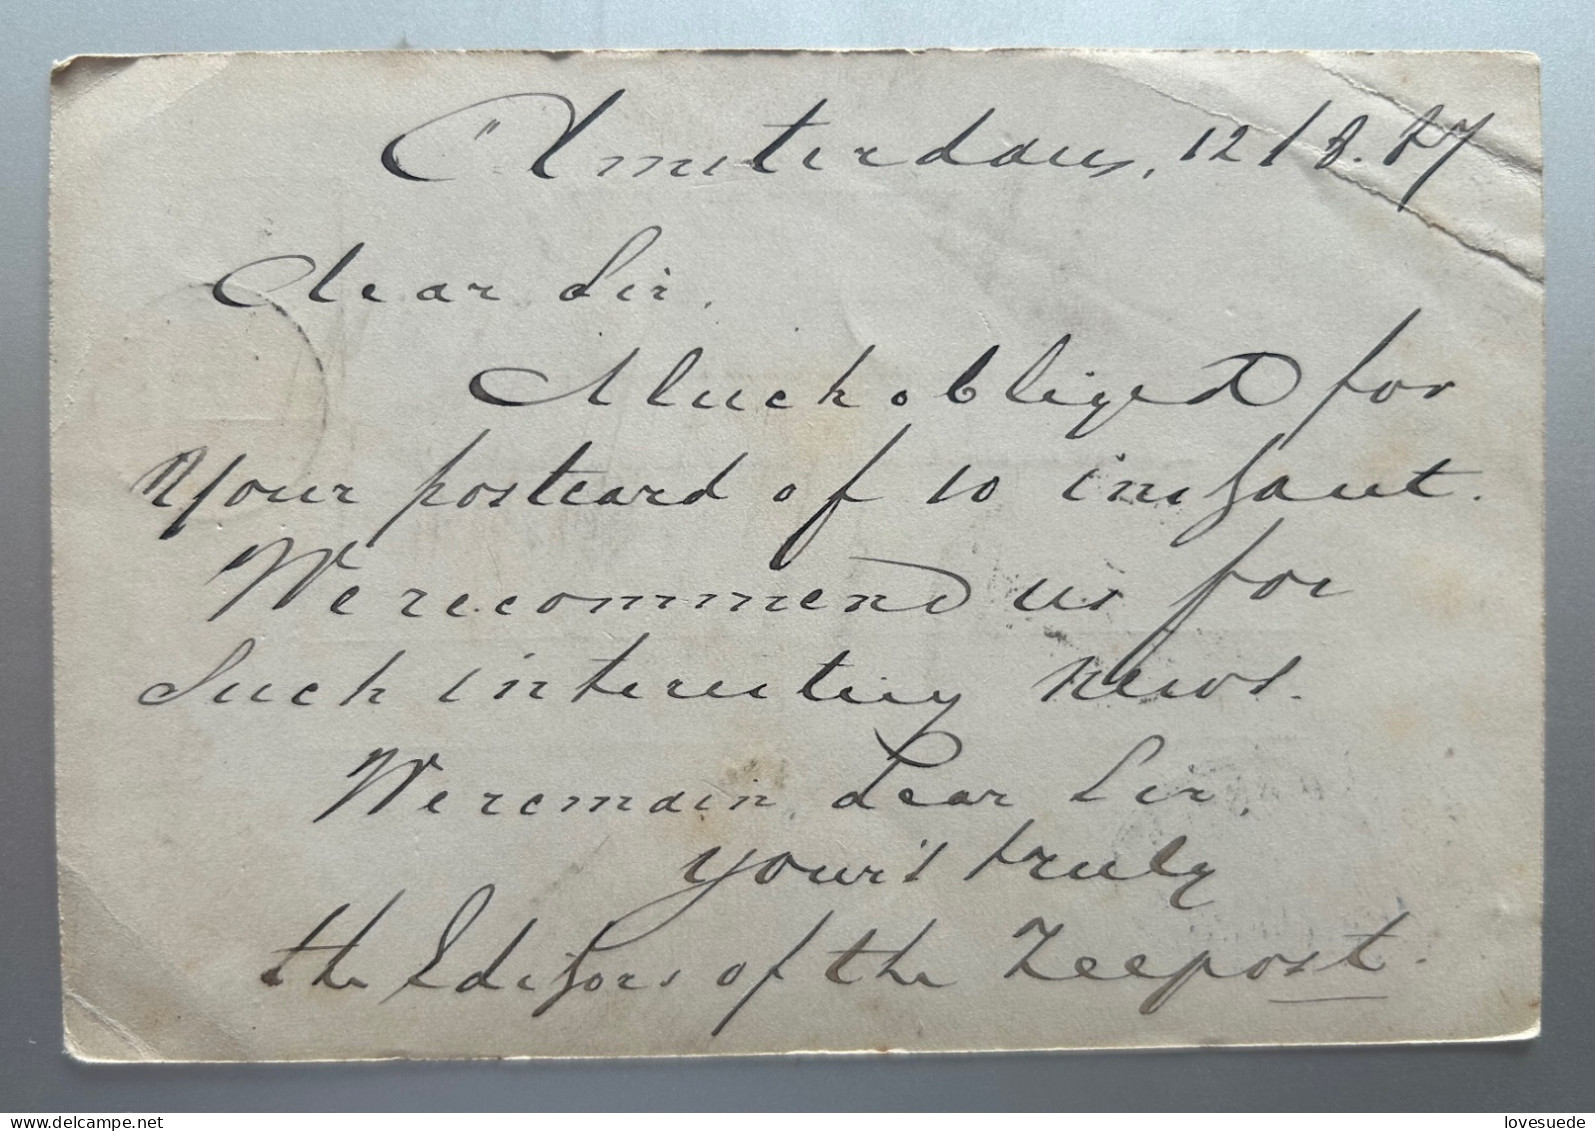 Amsterdam, 12/8.87
Dear Sir.
Much obliged for
Your postcard of 10 instant.
We recommend us for
such interesting news.
We remain, dear Sir,
your's truly
the Editors of the Zeepost.
www.delcampe.net
lovesuede